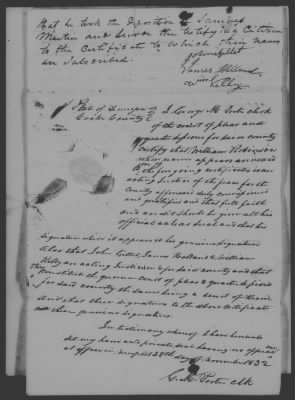 that he took the Deposition of
Martin and swore the testifying Citizen
to the Certificate to which their names
are subscribed.
John Gillett
James Holland
Wm Kelly
State of Tennessee } I George M. Porter clerk
Cocke County } of the court of pleas and
quarter sessions for said county
certify that William Robinson
whose name appears annexed
to the foregoing certificates is an
acting Justice of the peace for the
county aforesaid duly commissioned
and qualified and that full faith
and credit should be given all his
official acts as such and that his
signature where it appears is his genuine signature
Also that John Gillett, James Holland & William
Kelly are acting Justices for said county and that
they constitute the present court of pleas & quarter sessions
for said county the same being a court of Record
And that their signatures to the above certificate
are their genuine signatures.
In testimony whereof I have hereunto
set my hand and private seal having no official one
at office in Newport 28th day of November 1832
G. M. Porter clk